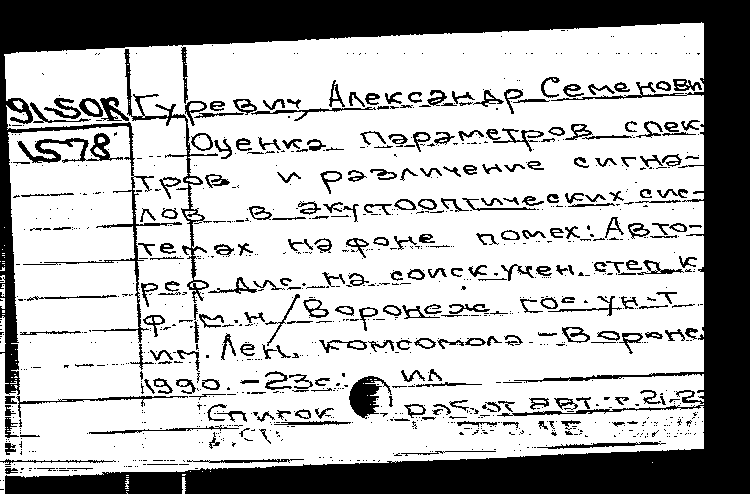 91-50R Гуревич, Александр Семенови
1578 Оценка параметров спек-
тров и различение сигна-
лов в акустооптических сис-
темах на фоне помех: Авто-
реф. дис. на соиск. учен. степ. к.
ф.-м.н. / Воронеж. гос. ун-т
им. Лен. комсомола. - Вороне
1990. - 23с.: ил
Список работ авт.: с. 21-23